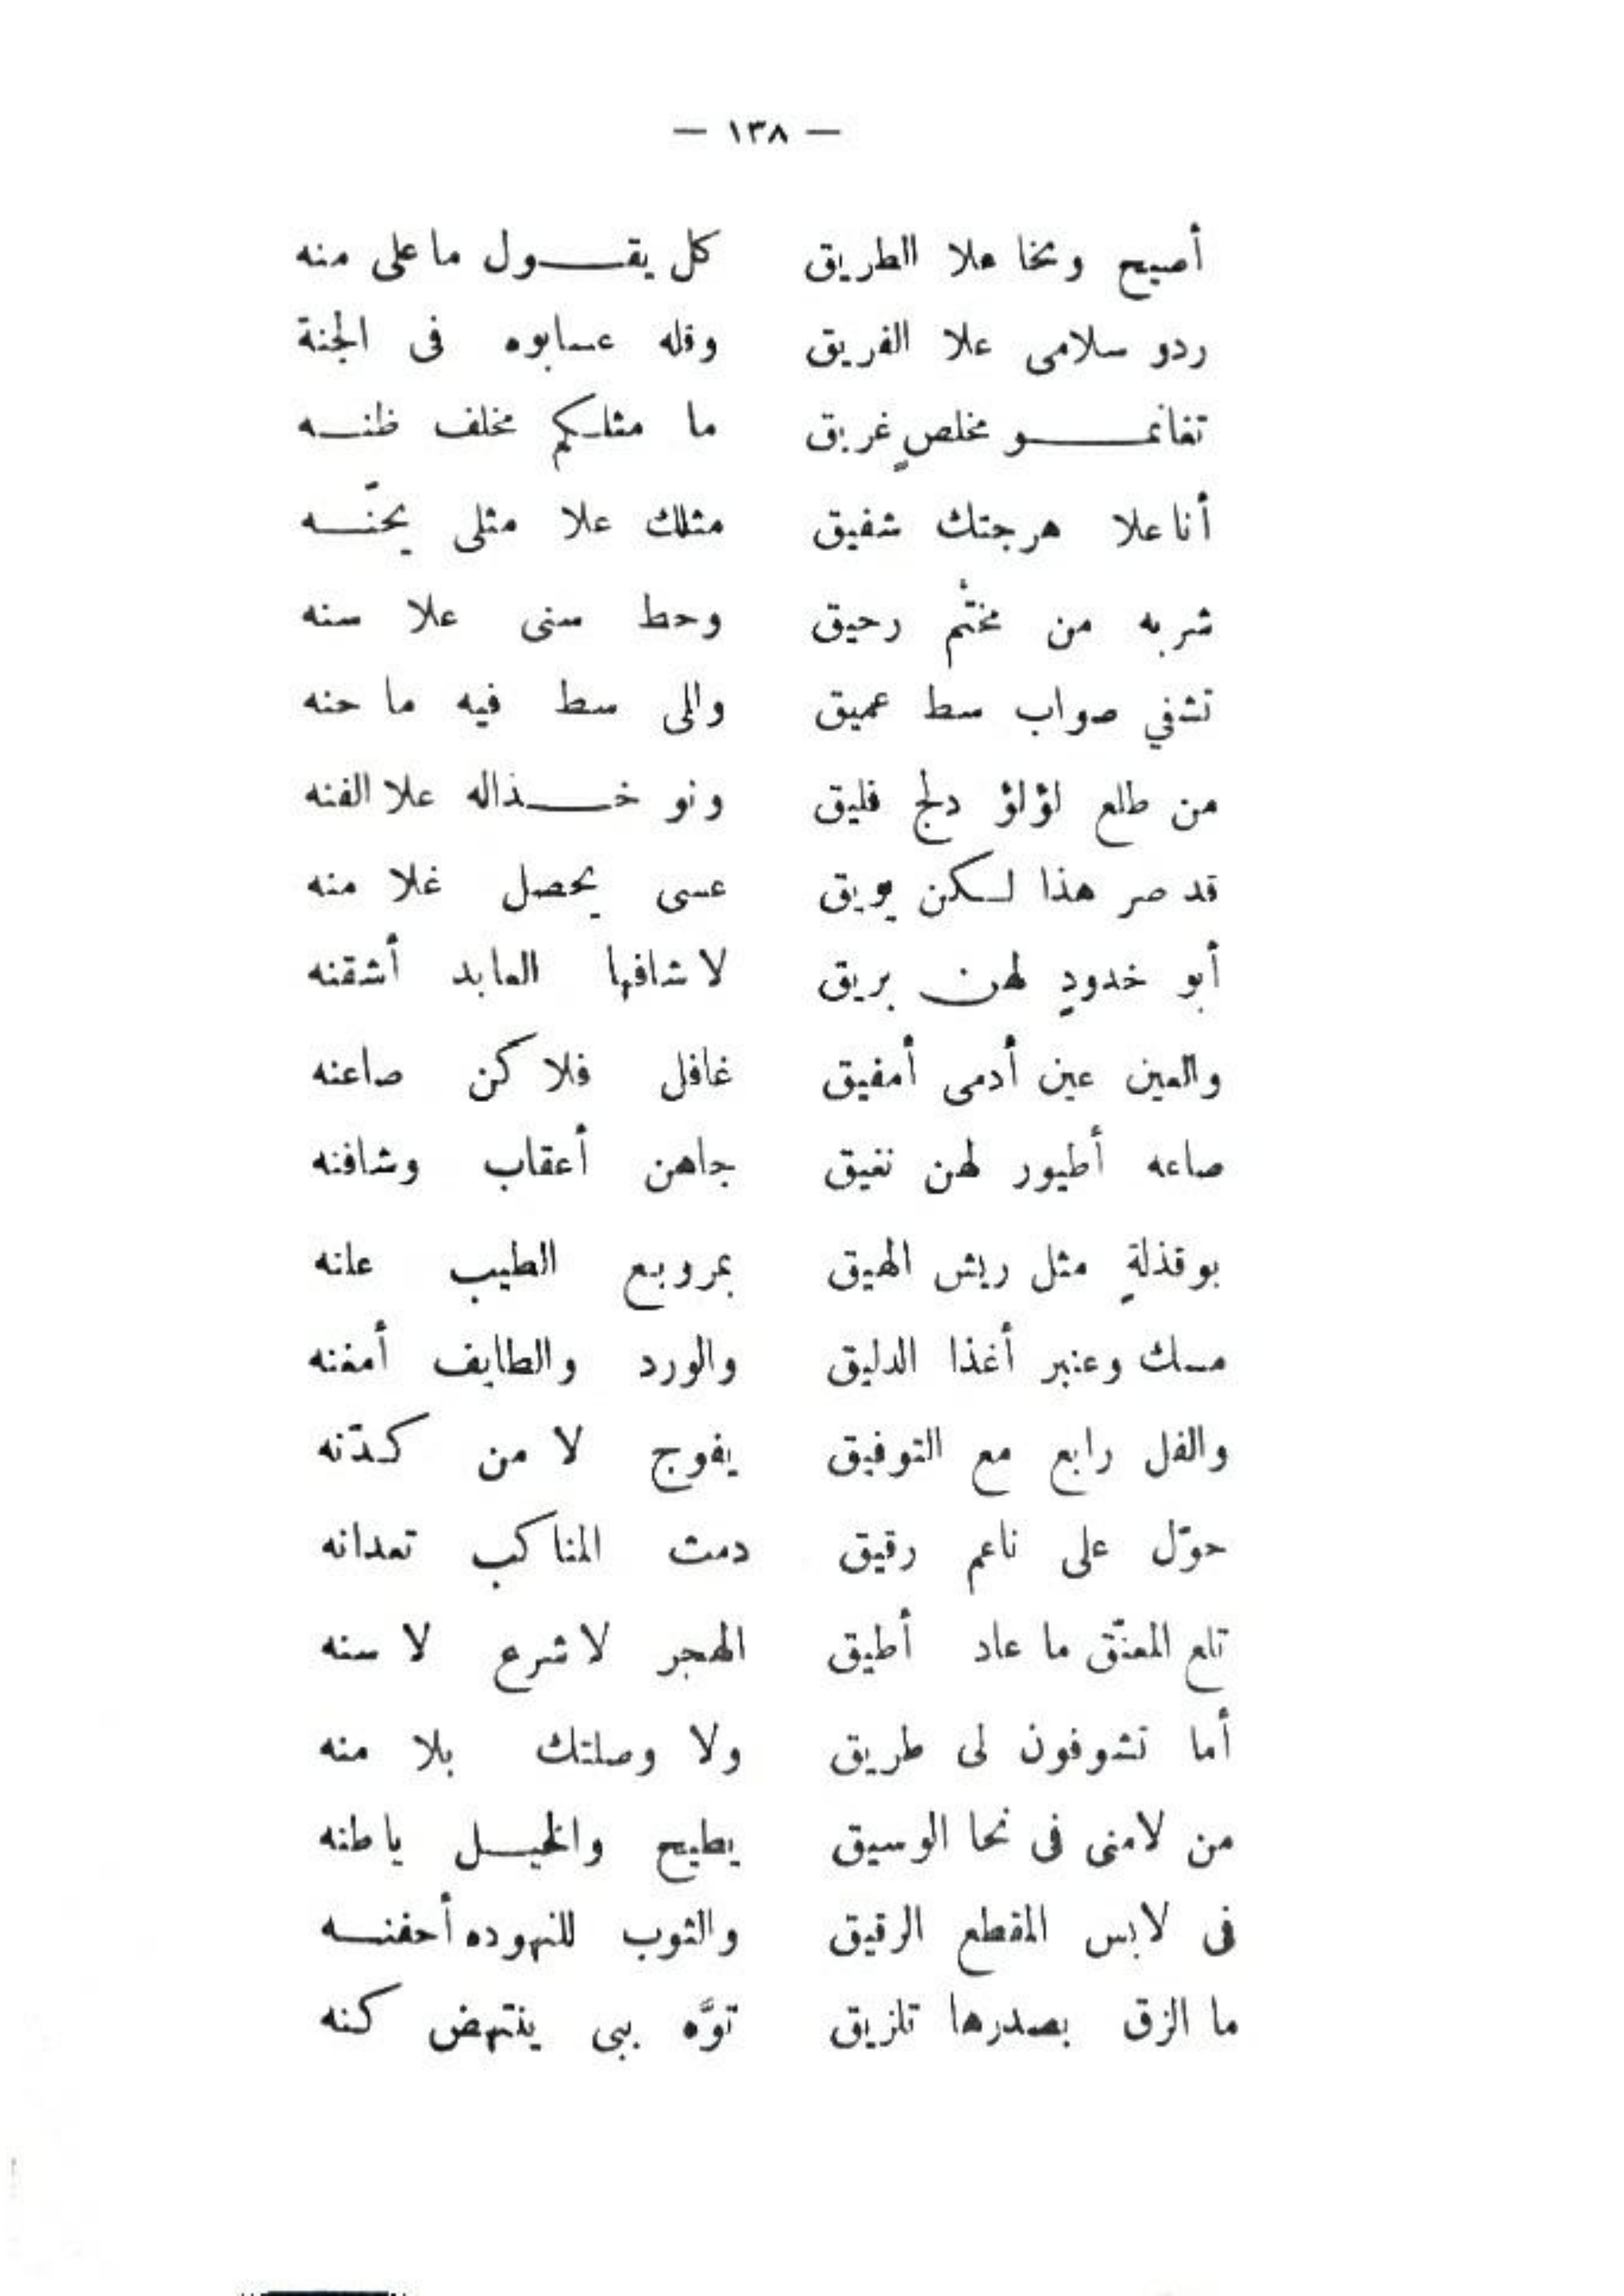 — ١٣٨ —
أصيح ونخا علا الطريق كل يقـــول ما على منه
ردو سلامى علا الفريق وقله عسابوه فى الجنة
تغانمـــو مخلصٍ غريق ما مثلكم مخلف ظنـــه
أنا علا هرجتك شفيق مثلك علا مثلى يحنّـــه
شربه من مختْم رحيق وحط سنى علا سنه
تشفي صواب سط عميق واللى سط فيه ما حنه
من طلع لؤلؤ دلج فليق ونو خـــذاله علا الفنه
قد صر هذا لكن يويق عسى يحصل غلا منه
أبو خدودٍ لهن بريق لا شافها العابد أشقنه
والعين عين أدمى أمفيق غافل فلا كن صاعنه
صاعه أطيور لهن نغيق جاهن أعقاب وشافنه
بو قذلةٍ مثل ريش الهيق بمروبع الطيب عانه
مسك وعنبر أغذا الدليق والورد والطايف أمغنه
والفل رابع مع التوفيق يفوج لا من كدّنه
حوّل على ناعم رقيق دمث المناكب تعدانه
تلع المعنّق ما عاد أطيق الهجر لا شرع لا سنه
أما تشوفون لى طريق ولا وصلتك بلا منه
من لامنى فى نحا الوسيق يطيح والخيـــل ياطنه
فى لابس المقطع الرقيق والثوب للنهوده أحفنـــه
ما الزق بصدرها تلزيق توَّه يبى ينتهض كنه